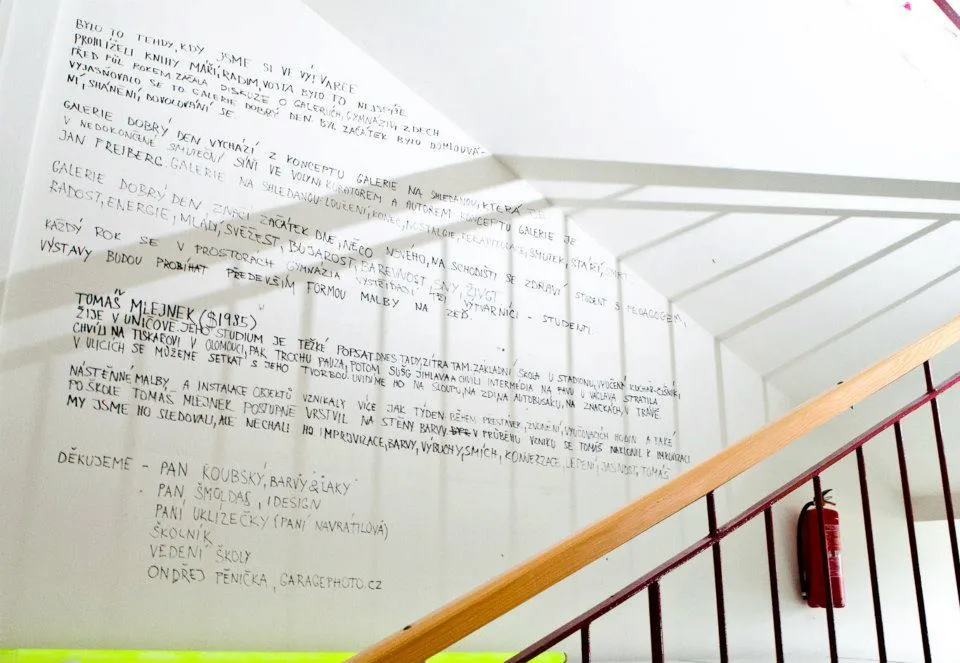 BYLO TO TEHDY, KDY JSME SI VE VÝTVARCE
PROHLÍŽELI KNIHY MÁŘI, RADIM, VOJTA BYLO TO NEJSPÍŠE
PŘED PŮL ROKEM ZAČALA DISKUZE O GALERIÍCH, GYMNÁZIU, ZDECH
VYJASŇOVALO SE TO. GALERIE DOBRÝ DEN. BYL ZAČÁTEK BYLO DOMLOUVÁ-
NÍ, SHÁNĚNÍ, DOVOLOVÁNÍ SE.
GALERIE DOBRÝ DEN VYCHÁZÍ Z KONCEPTU GALERIE NA SHLEDANOU, KTERÁ JE
V NEDOKONČENÉ SMUTEČNÍ SÍNI VE VOLYNI KURÁTOREM A AUTOREM KONCEPTU GALERIE JE
JAN FREIBERG. GALERIE NA SHLEDANOU: LOUČENÍ, KONEC, NOSTALGIE, REKAPITULACE, SMUTEK, STÁŘÍ, SMRT
GALERIE DOBRÝ DEN ZNAČÍ ZAČÁTEK DNE, NĚCO NOVÉHO, NA SCHODIŠTI SE ZDRAVÍ STUDENT S PEDAGOGEM,
RADOST, ENERGIE, MLÁDÍ, SVĚŽEST, BUJAROST, BAREVNOST, SNY, ŽIVOT
KAŽDÝ ROK SE V PROSTORÁCH GYMNÁZIA VYSTŘÍDAJÍ VÝTVARNÍCI - STUDENTI.
VÝSTAVY BUDOU PROBÍHAT PŘEDEVŠÍM FORMOU MALBY NA ZEĎ.
TOMÁŠ MLEJNEK ($1985)
ŽIJE V UNIČOVĚ. JEHO STUDIUM JE TĚŽKÉ POPSAT. DNES TADY, ZÍTRA TAM. ZÁKLADNÍ ŠKOLA U STADIONU, VYUČENÝ KUCHAŘ-ČÍŠNÍK,
CHVÍLI NA TISKAŘOVI V OLOMOUCI, PAK TROCHU PAUZA, POTOM SUŠG JIHLAVA A CHVÍLI INTERMÉDIA NA FAVU U VÁCLAVA STRATILA
V ULICÍCH SE MŮŽEME SETKAT S JEHO TVORBOU. UVIDÍME HO NA SLOUPU, NA ZDI, NA AUTOBUSÁKU, NA ZNAČKÁCH, V TRÁVĚ.
NÁSTĚNNÉ MALBY A INSTALACE OBJEKTŮ VZNIKALY VÍCE JAK TÝDEN BĚHEM PŘESTÁVEK, ZVONĚNÍ, VYUČOVACÍCH HODIN A TAKÉ
PO ŠKOLE TOMÁŠ MLEJNEK POSTUPNĚ VRSTVIL NA STĚNY BARVY V PRŮBĚHU VZNIKU SE TOMÁŠ NAKLONIL K IMPROVIZACI
MY JSME HO SLEDOVALI, ALE NECHALI HO IMPROVIZACE, BARVY, VÝBUCHY, SMÍCH, KONVERZACE, LEPENÍ, JASNOST, TOMÁŠ
DĚKUJEME - PAN KOUBSKÝ, BARVY & LAKY
PAN ŠMOLDAS, IDESIGN
PANÍ UKLÍZEČKY (PANÍ NAVRÁTILOVÁ)
ŠKOLNÍK
VEDENÍ ŠKOLY
ONDŘEJ PĚNIČKA, GARAGEPHOTO.CZ